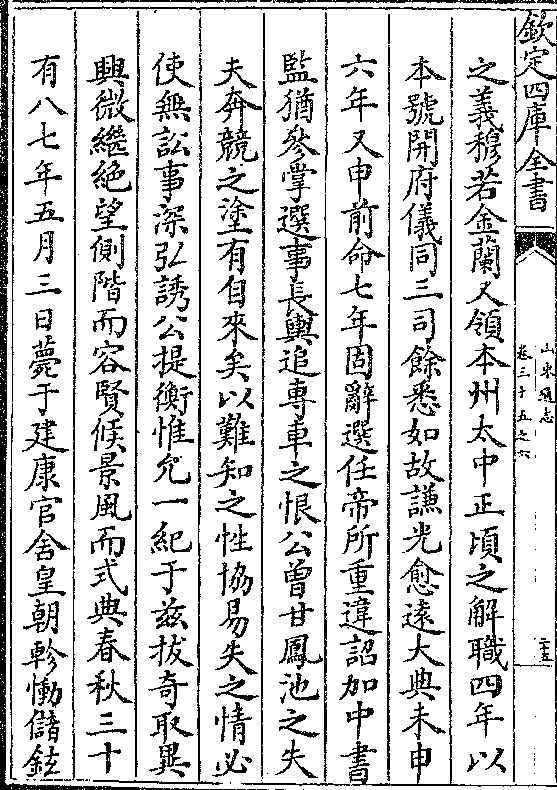 欽定四庫全書
山東通志
卷三十五之六
二十五
之義穆若金蘭又領本州大中正頃之解職四年以
本號開府儀同三司餘悉如故謙光愈遠大典未申
六年又申前命七年固辭選任帝所重違詔加中書
監猶參掌選事長輿追專車之恨公曾甘鳳池之失
夫奔競之塗有自來矣以難知之性協易失之情必
使無訟事深弘誘公提衡惟允一紀于兹拔奇取異
興微繼絶望側階而容賢候景風而式典春秋三十
有八七年五月三日薨于建康官舍皇朝軫慟儲鉉